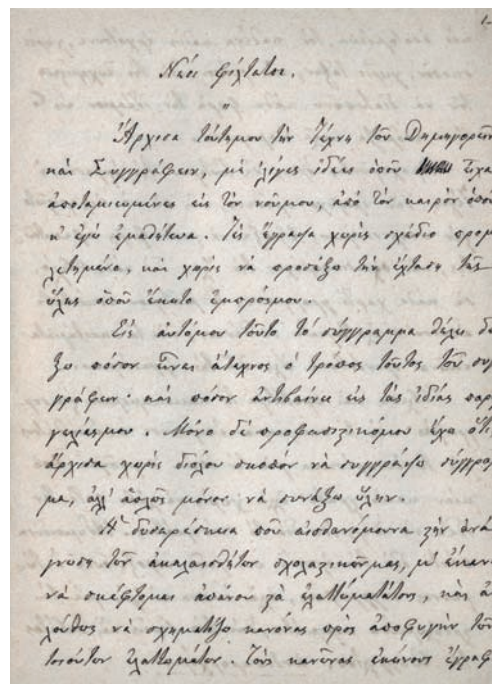 1
Νέοι φίλτατοι.
Ἄρχισα τούτημου τὴν Τέχνη τοῦ Δημηγορεῖν
καὶ Συγγράφειν, μὲ ὀλίγες ἰδέες ὁποῦ εἶχα
ἀποταμιωμένες εἰς τὸν νοῦμου, ἀπὸ τὸν καιρὸν ὁποῦ
κ' ἐγὼ ἐμαθήτευα. Τὲς ἔγραψα χωρὶς σχέδιο προμε
λετημένο, καὶ χωρὶς νὰ προσέξω τὴν ἔχταση τῆς
ὕλης ὁποῦ ἔκατο ἐμπρόςμου.
Εἰς αὐτόμου τοῦτο τὸ σύγγραμμα θέλω δεί
ξω πόσον εἶναι ἄτεχνος ὁ τρόπος τοῦτος τοῦ συγ
γράφειν· καὶ πόσον ἀντιβαίνει εἰς τὰς ἰδίας παραγ
γελίαςμου. Μόνο δὲ προφασιστικόμου ἔχω ὅτι
ἄρχισα χωρὶς διόλου σκοπὸν νὰ συγγράψω σύγγραμ
μα, ἀλλ' ἁπλῶς μόνον νὰ συνάξω ὕλην.
Ἡ δυσαρέσκεια ποῦ αἰσθανόμουνα στὴν ἀνά
γνωση τῶν ἀκαλαισθήτων σχολαστικῶνμας, μ' ἔκανε
νὰ σκέφτομαι ἀπάνου στὰ ἐλαττώματάτους, καὶ ἀκο
λούθως νὰ σχηματίζω κανόνας πρὸς ἀποφυγὴν τῶν
τοιούτων ἐλαττωμάτων. Τοὺς κανόνας ἐκείνους ἔγραφα